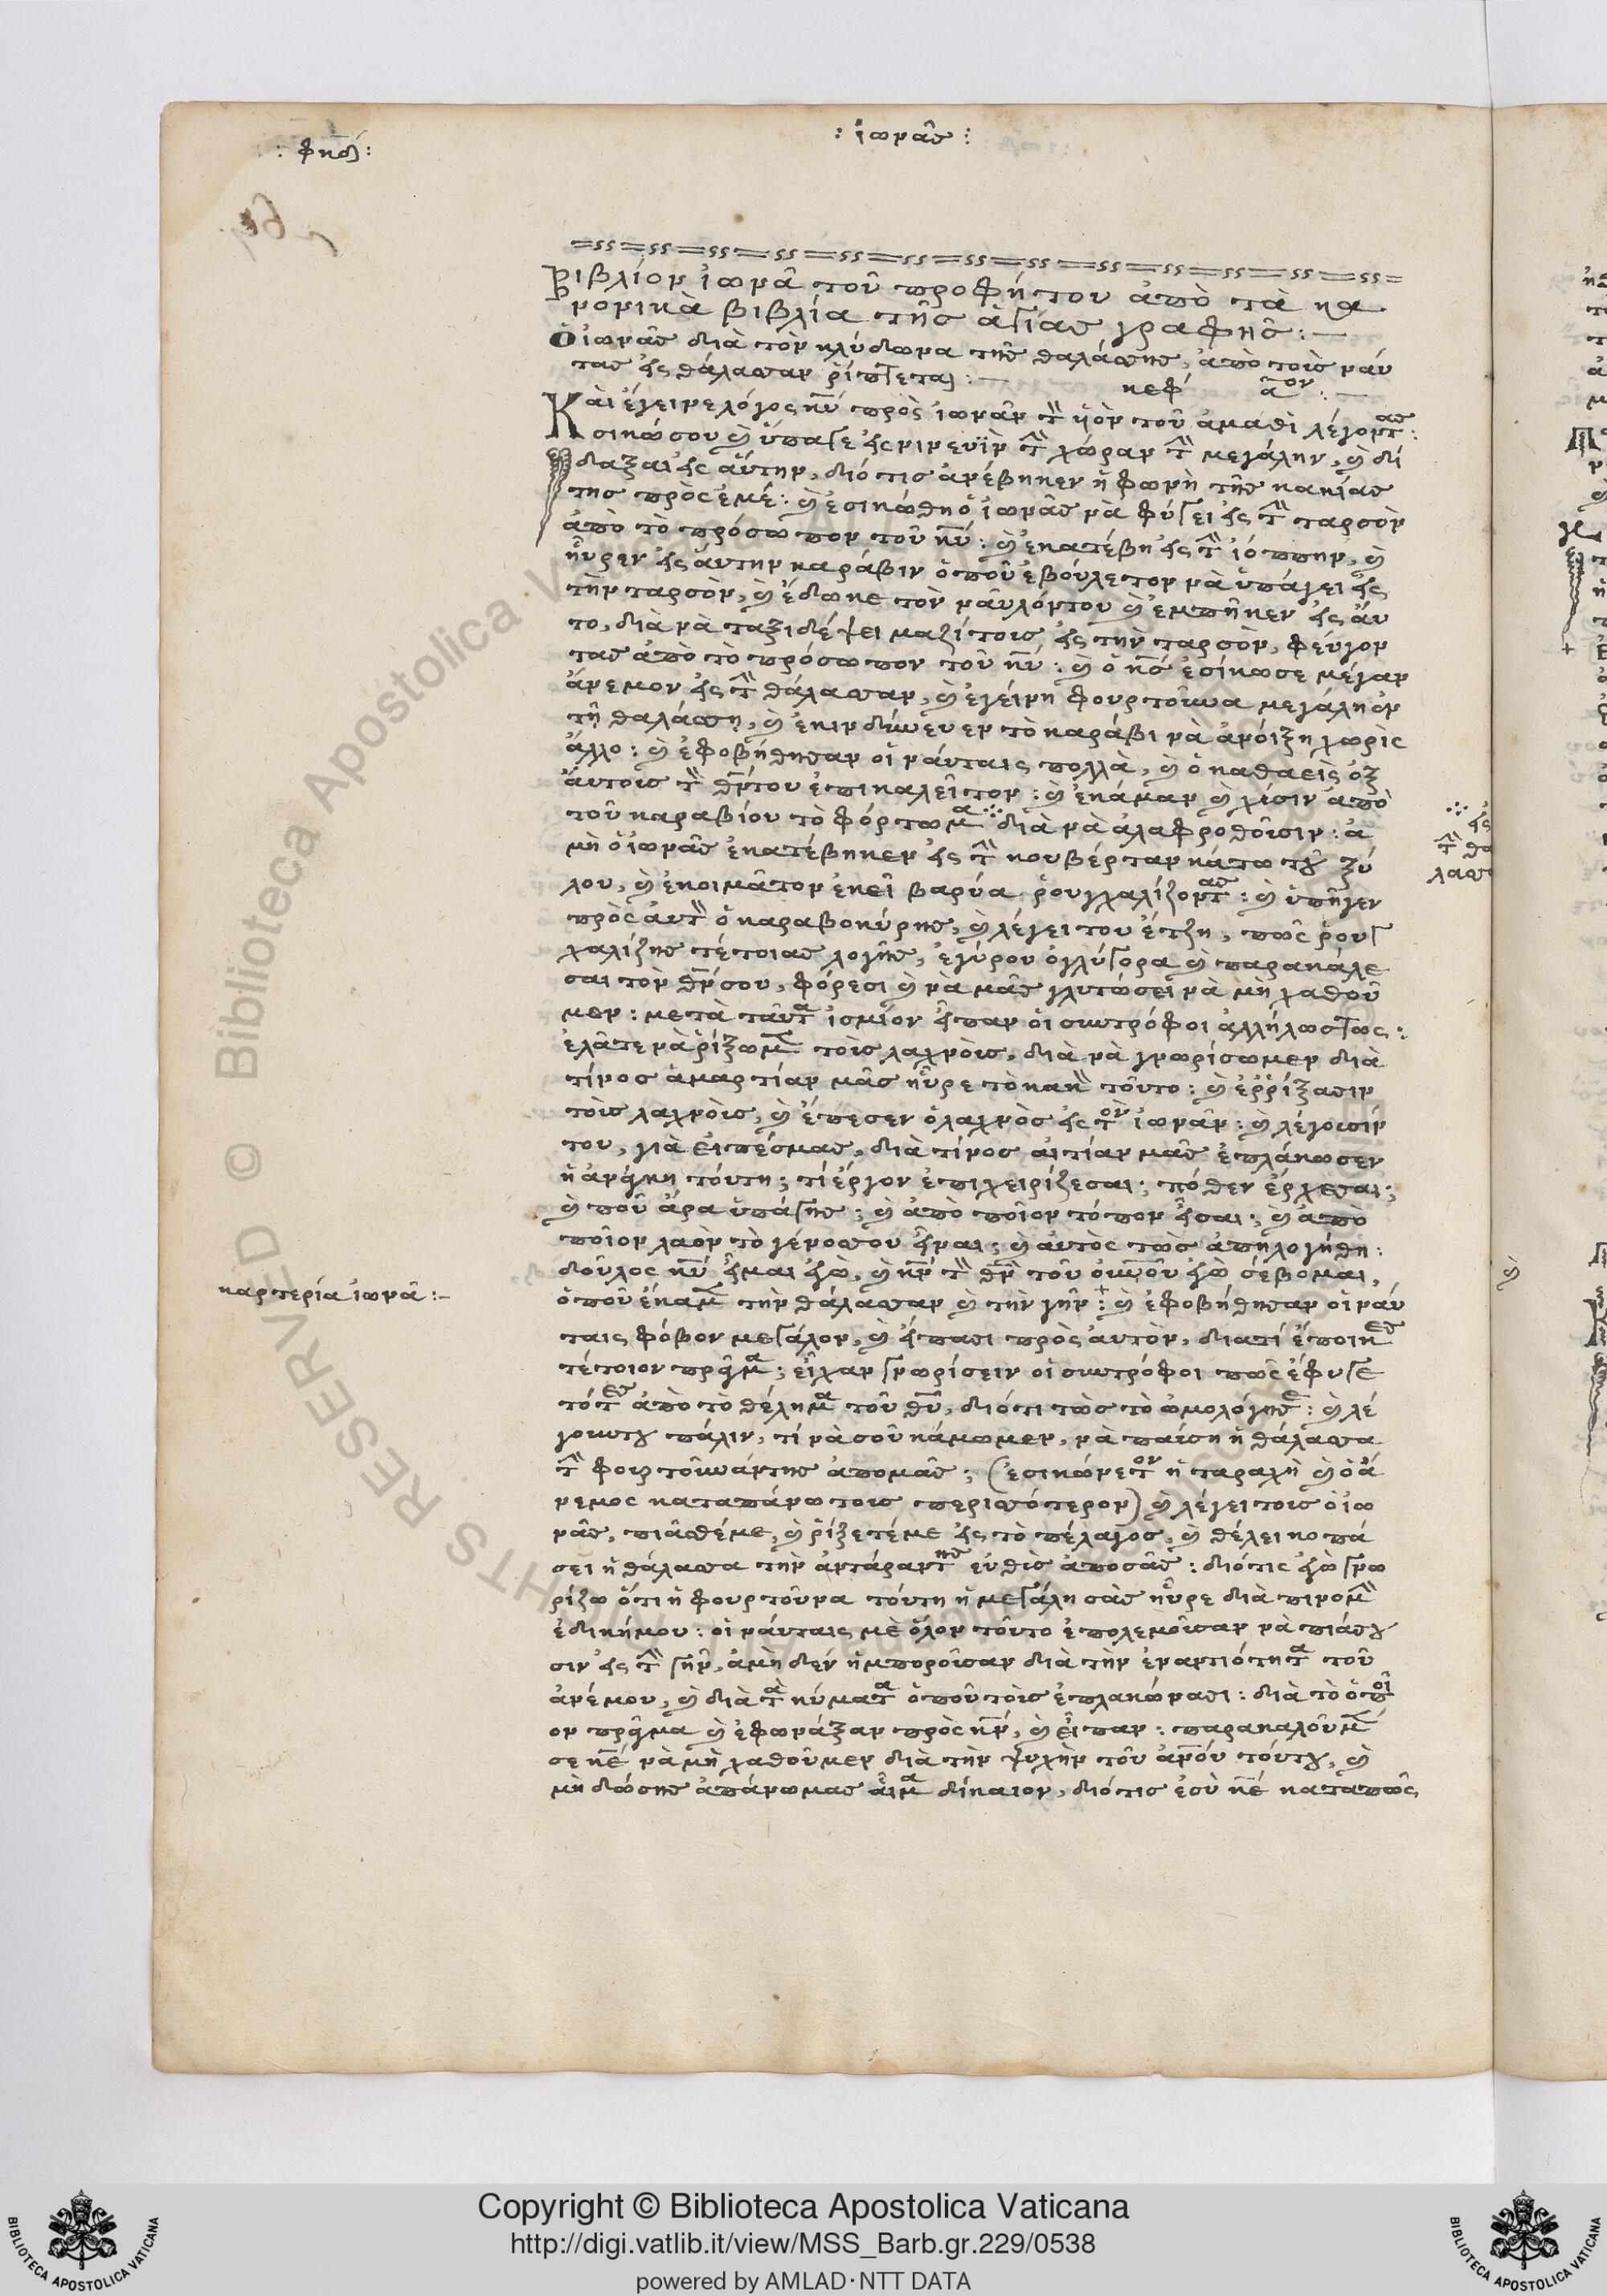 : ἰωνᾶς :
βιβλίον ἰωνᾶ τοῦ προφήτου ἀπὸ τὰ κα
νονικὰ βιβλία τῆς ἁγίας γραφῆς : —
ὁ ἰωνᾶς διὰ τὸν κλύδωνα τῆς θαλάσσης, ἀπὸ τοὶς ναύ
τας εἰς θάλασσαν ῥίπτεται : — κεφ ά̅ον : —
Καὶ ἔγεινε λόγος κ̅υ̅ πρὸς ἰωνᾶν τὸν ὑὸν τοῦ ἀμαθὶ λέγοντας :
σικώσου καὶ ὕπαγε εἰς νινευῒν τὴν χώραν τὴν μεγάλην, καὶ δί
δαξαι εἰς αὔτην, διότις ἀνέβηκεν ἡ φωνὴ τῆς κακίας
της πρὸς ἐμέ : καὶ ἐσικώθη ὁ ἰωνᾶς νὰ φύγει εἰς τὴν ταρσὸν
ἀπὸ τὸ πρόσωπον τοῦ κ̅υ̅ : καὶ ἐκατέβη εἰς τὴν ἰόππην, καὶ
ηὗρεν εἰς αὔτην καράβιν ὁποῦ ἐβούλετον νὰ ὑπάγει εἰς
τὴν ταρσὸν, καὶ ἔδωκε τὸν ναῦλόντου καὶ ἐμπῆκεν εἰς αὔ
το, διὰ νὰ ταξιδέψει μαζίτοις εἰς τὴν ταρσὸν, φεύγον
τας ἀπὸ τὸ πρόσωπον τοῦ κ̅υ̅ : καὶ ὁ κ̅ς̅ ἐσίκωσε μέγαν
ἄνεμον εἰς τὴν θάλασσαν, καὶ ἐγείνη φουρτοῦνα μεγάλη ἐν
τῇ θαλάσσῃ, καὶ ἐκινδύνευεν τὸ καράβι νὰ ἀνοίξη χωρὶς
ἄλλο : καὶ ἐφοβήθησαν οἱ ναύταις πολλὰ, καὶ ὁ καθαεὶς ἐξ
αὔτοις τὸν θ̅ν̅του ἐπικαλεῖτον : καὶ ἐκάμαν καὶ χύσιν ἀπὸ
τοῦ καραβίου τὸ φόρτωμα διὰ νὰ ἀλαφροθοῦσιν : ἀ
μὴ ὁ ἰωνᾶς ἐκατέβηκεν εἰς τὴν κουβέρταν κάτω τοῦ ξύ
λου, καὶ ἐκοιμᾶτον ἐκεῖ βαρύα ῥουχαλίζοντας : καὶ ὑπῆγεν
πρὸς αὐτὸν ὁ καραβοκύρης, καὶ λέγει του ἔτζη, πῶς ῥουγ
χαλίζης τέτοιας λογῆς, ἐγύρου ὀγλύγορα καὶ παρακάλε
σαι τὸν θ̅ν̅σου, φόρεσι καὶ νὰ μᾶς γλυτώσει νὰ μὴ χαθοῦ
μεν : μετὰ ταῦτα ἰσμίον εἶπαν οἱ συντρόφοι ἀλλήλωστως :
ἐλᾶτε νὰ ῥίξωμεν τοὶς λαχνοὶς, διὰ νὰ γνωρίσωμεν διὰ
τίνος ἁμαρτίαν μᾶς ηὗρε τὸ κακὸν τοῦτο : καὶ ἐῤῥίξασιν
τοὶς λαχνοὶς, καὶ ἔπεσεν ὁ λαχνὸς εἰς τὸν ἰωνᾶν : καὶ λέγουσίν
του, γιὰ εἰπέσμας, διὰ τίνος αἰτίαν μᾶς ἐπλάκωσεν
ἡ ἀνάγκη τούτη ; τί ἔργον ἐπιχειρίζεσαι ; πόθεν ἔρχεσαι ;
καὶ ποῦ ἄρα ὑπάγης ; καὶ ἀπὸ ποῖον τόπον εἶσαι ; καὶ ἀπὸ
ποῖον λαὸν τὸ γένοσσου εἶναι ; καὶ αὐτὸς τὼς ἀπηλογήθη :
δοῦλος κ̅υ̅ εἶμαι ἐγὼ, καὶ κ̅ν̅ τὸν θ̅ν̅ τοῦ οὐ̅ν̅οῦ ἐγὼ σέβομαι,
καρτερία ἰωνᾶ : —
ὁποῦ ἔκαμεν τὴν θάλασσαν καὶ τὴν γῆν : καὶ ἐφοβήθησαν οἱ ναύ
ταις φόβον μεγάλον, καὶ εἴπασι πρὸς αὐτὸν, διατί ἔποικες
τέτοιον πρᾶγμα ; εἶχαν γνωρίσειν οἱ συντρόφοι πῶς ἔφυγε
τότες ἀπὸ τὸ θέλημα τοῦ θ̅υ̅, διότι τὼς τὸ ὡμολόγησε : καὶ λέ
γουντου πάλιν, τί νὰ σοῦ κάμωμεν, νὰ παύση ἡ θάλασσα
τὴν φουρτοῦνάντης ἀπομᾶς ; (ἐσικώνετον ἡ ταραχὴ καὶ ὁ ἄ
νεμος καταπάνω τοις περισσότερον) καὶ λέγει τοις ὁ ἰω
νᾶς, πιᾶσθέμε, καὶ ῥίξετέμε εἰς τὸ πέλαγος, καὶ θέλει κοπά
σει ἡ θάλασσα τὴν ἀντάραντης εὐθὶς ἀποσᾶς : διότις ἐγὼ γνω
ρίζω ὅτι ἡ φουρτοῦνα τούτη ἡ μεγάλη σὰς ηὗρε διὰ
ἐδικήμου : οἱ ναύταις μὲ ὅλον τοῦτο ἐπολεμοῦσαν νὰ πιάσου
σιν εἰς τὴν γῆν, ἀμὴ δὲν ἠμποροῦσαν διὰ τὴν ἐναντιότητα τοῦ
ἀνέμου, καὶ διὰ τὰ κύματα ὁποῦ τοὶς ἐπλακώνασι : διὰ τὸ ὁποῖ
ον πρᾶγμα καὶ ἐφωνάξαν πρὸς κ̅ν̅, καὶ εἶπαν : παρακαλοῦμεν
σε κ̅ε̅ νὰ μὴ χαθοῦμεν διὰ τὴν ψυχὴν τοῦ ἀ̅ν̅ου τούτου, καὶ
μὴ δώσης ἀπάνωμας αἷμα δίκαιον, διότις ἐσὺ κ̅ε̅ καταπῶς
Copyright © Biblioteca Apostolica Vaticana
http://digi.vatlib.it/view/MSS_Barb.gr.229/0538
powered by AMLAD·NTT DATA